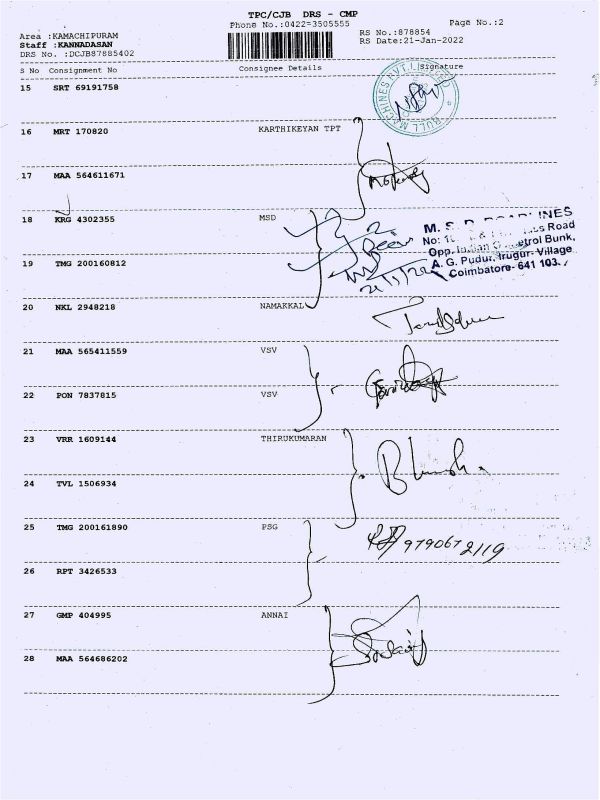 TPC/CJB DRS - CMP
Phone No.:0422=3505555 Page No.:2
Area :KAMACHIPURAM RS No.:878854
Staff :KANNADASAN RS Date:21-Jan-2022
DRS No. :DCJB87885402
S No Consignment No Consignee Details Signature
15 SRT 69191758
BULL MACHINES PVT LIMITED
16 MRT 170820 KARTHIKEYAN TPT
17 MAA 564611671
18 KRG 4302355 MSD
M. S. D. ROADLINES
Road
Opp. Indian Petrol Bunk,
A. G. Pudur, Irugur- Village
Coimbatore- 641 103.
19 TMG 200160812
21/1/22
20 NKL 2948218 NAMAKKAL
21 MAA 565411559 VSV
22 PON 7837815 VSV
23 VRR 1609144 THIRUKUMARAN
24 TVL 1506934
25 TMG 200161890 PSG
9790672119
26 RPT 3426533
27 GMP 404995 ANNAI
28 MAA 564686202